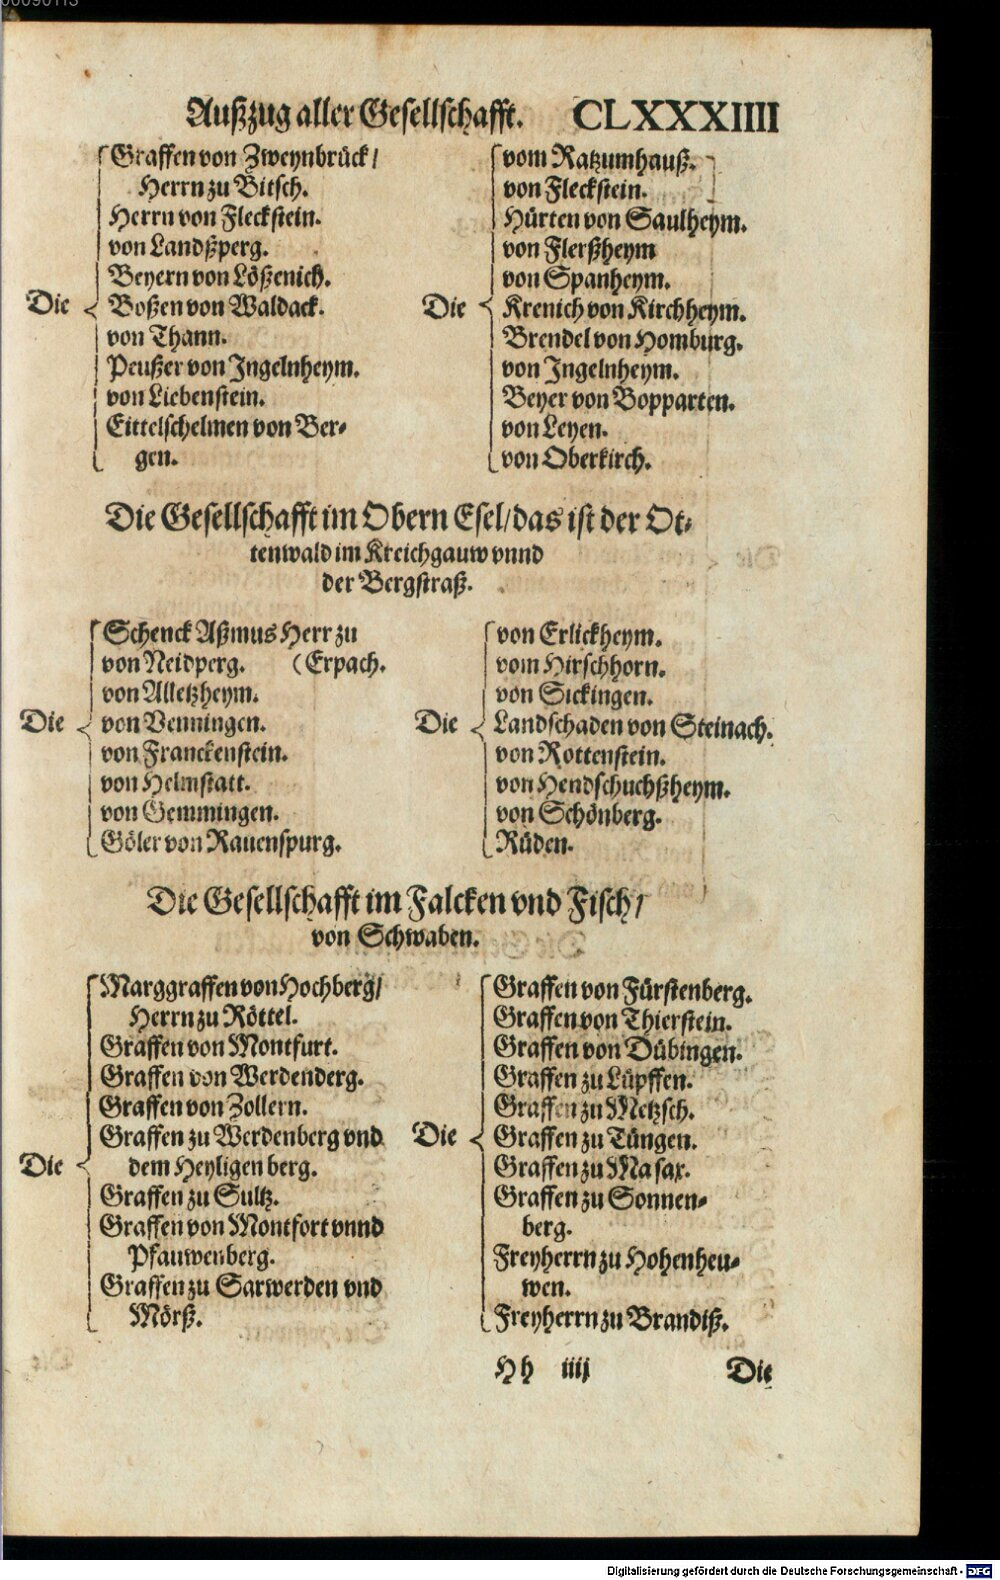 Außzug aller Gesellschafft. CLXXXIIII
Graffen von Zweynbrück/
Herrn zu Bitsch.
Herrn von Fleckstein.
von Landßperg.
Beyern von Lößenich.
Die
Boßen von Waldack.
von Thann.
Peußer von Jngelnheym.
von Liebenstein.
Eittelschelmen von Ber-
gen.
vom Ratzumhauß.
von Fleckstein.
Hürten von Saulheym.
von Flerßheym
von Spanheym.
Die
Krenich von Kirchheym.
Brendel von Homburg.
von Jngelnheym.
Beyer von Bopparten.
von Leyen.
von Oberkirch.
Die Gesellschafft im Obern Esel/das ist der Ot-
tenwald im Kreichgauw vnnd
der Bergstraß.
Schenck Aßmus Herr zu
von Neidperg. (Erpach.
von Alletzheym.
Die
von Venningen.
von Franckenstein.
von Helmstatt.
von Gemmingen.
Göler von Rauenspurg.
von Erlickheym.
vom Hirschhorn.
von Sickingen.
Die
Landschaden von Steinach.
von Rottenstein.
von Hendschuchßheym.
von Schönberg.
Rüden.
Die Gesellschafft im Falcken vnd Fisch/
von Schwaben.
Marggraffen von Hochberg/
Herrn zu Röttel.
Graffen von Montfurt.
Graffen von Werdenderg.
Graffen von Zollern.
Graffen zu Werdenberg vnd
Die
dem Heyligen berg.
Graffen zu Sultz.
Graffen von Montfort vnnd
Pfauwenberg.
Graffen zu Sarwerden vnd
Mörß.
Graffen von Fürstenberg.
Graffen von Thierstein.
Graffen von Dübingen.
Graffen zu Lüpffen.
Graffen zu Metzsch.
Die
Graffen zu Tüngen.
Graffen zu Masax.
Graffen zu Sonnen-
berg.
Freyherrn zu Hohenheu-
wen.
Freyherrn zu Brandiß.
Hh iiij Die
Digitalisierung gefördert durch die Deutsche Forschungsgemeinschaft - DFG